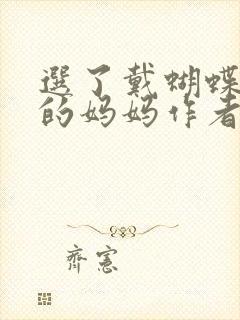 選了戴蝴蝶
的妈妈作者
齊憲